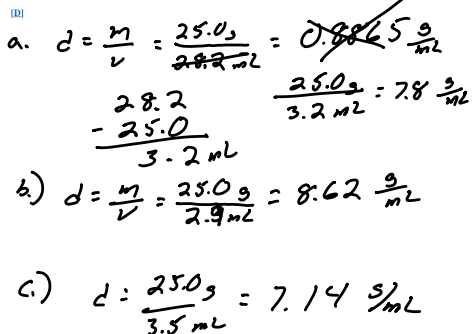 [D]
a. d = m/v = 25.0g/28.2 mL = 0.8865 g/mL
25.0g/3.2 mL = 7.8 g/mL
28.2
- 25.0
3.2 mL
b.) d = m/v = 25.0 g/2.9 mL = 8.62 g/mL
c.) d = 25.0g/3.5 mL = 7.14 g/mL